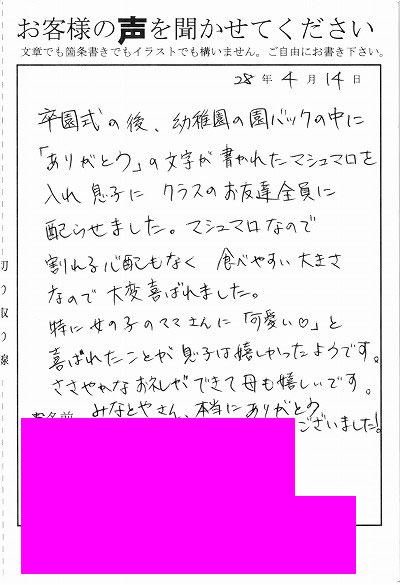 お客様の声を聞かせてください
文章でも箇条書きでもイラストでも構いません。ご自由にお書き下さい。
28年4月14日
卒園式の後、幼稚園の園バックの中に
「ありがとう」の文字が書かれたマシュマロを
入れ息子にクラスのお友達全員に
配らせました。マシュマロなので
割れる心配もなく食べやすい大きさ
なので大変喜ばれました。
特に女の子のママさんに「可愛い♡」と
喜ばれたことが息子は嬉しかったようです。
ささやかなお礼ができて母も嬉しいです。
みなとやさん、本当にありがとう
ございました!
お名前
切り取り線